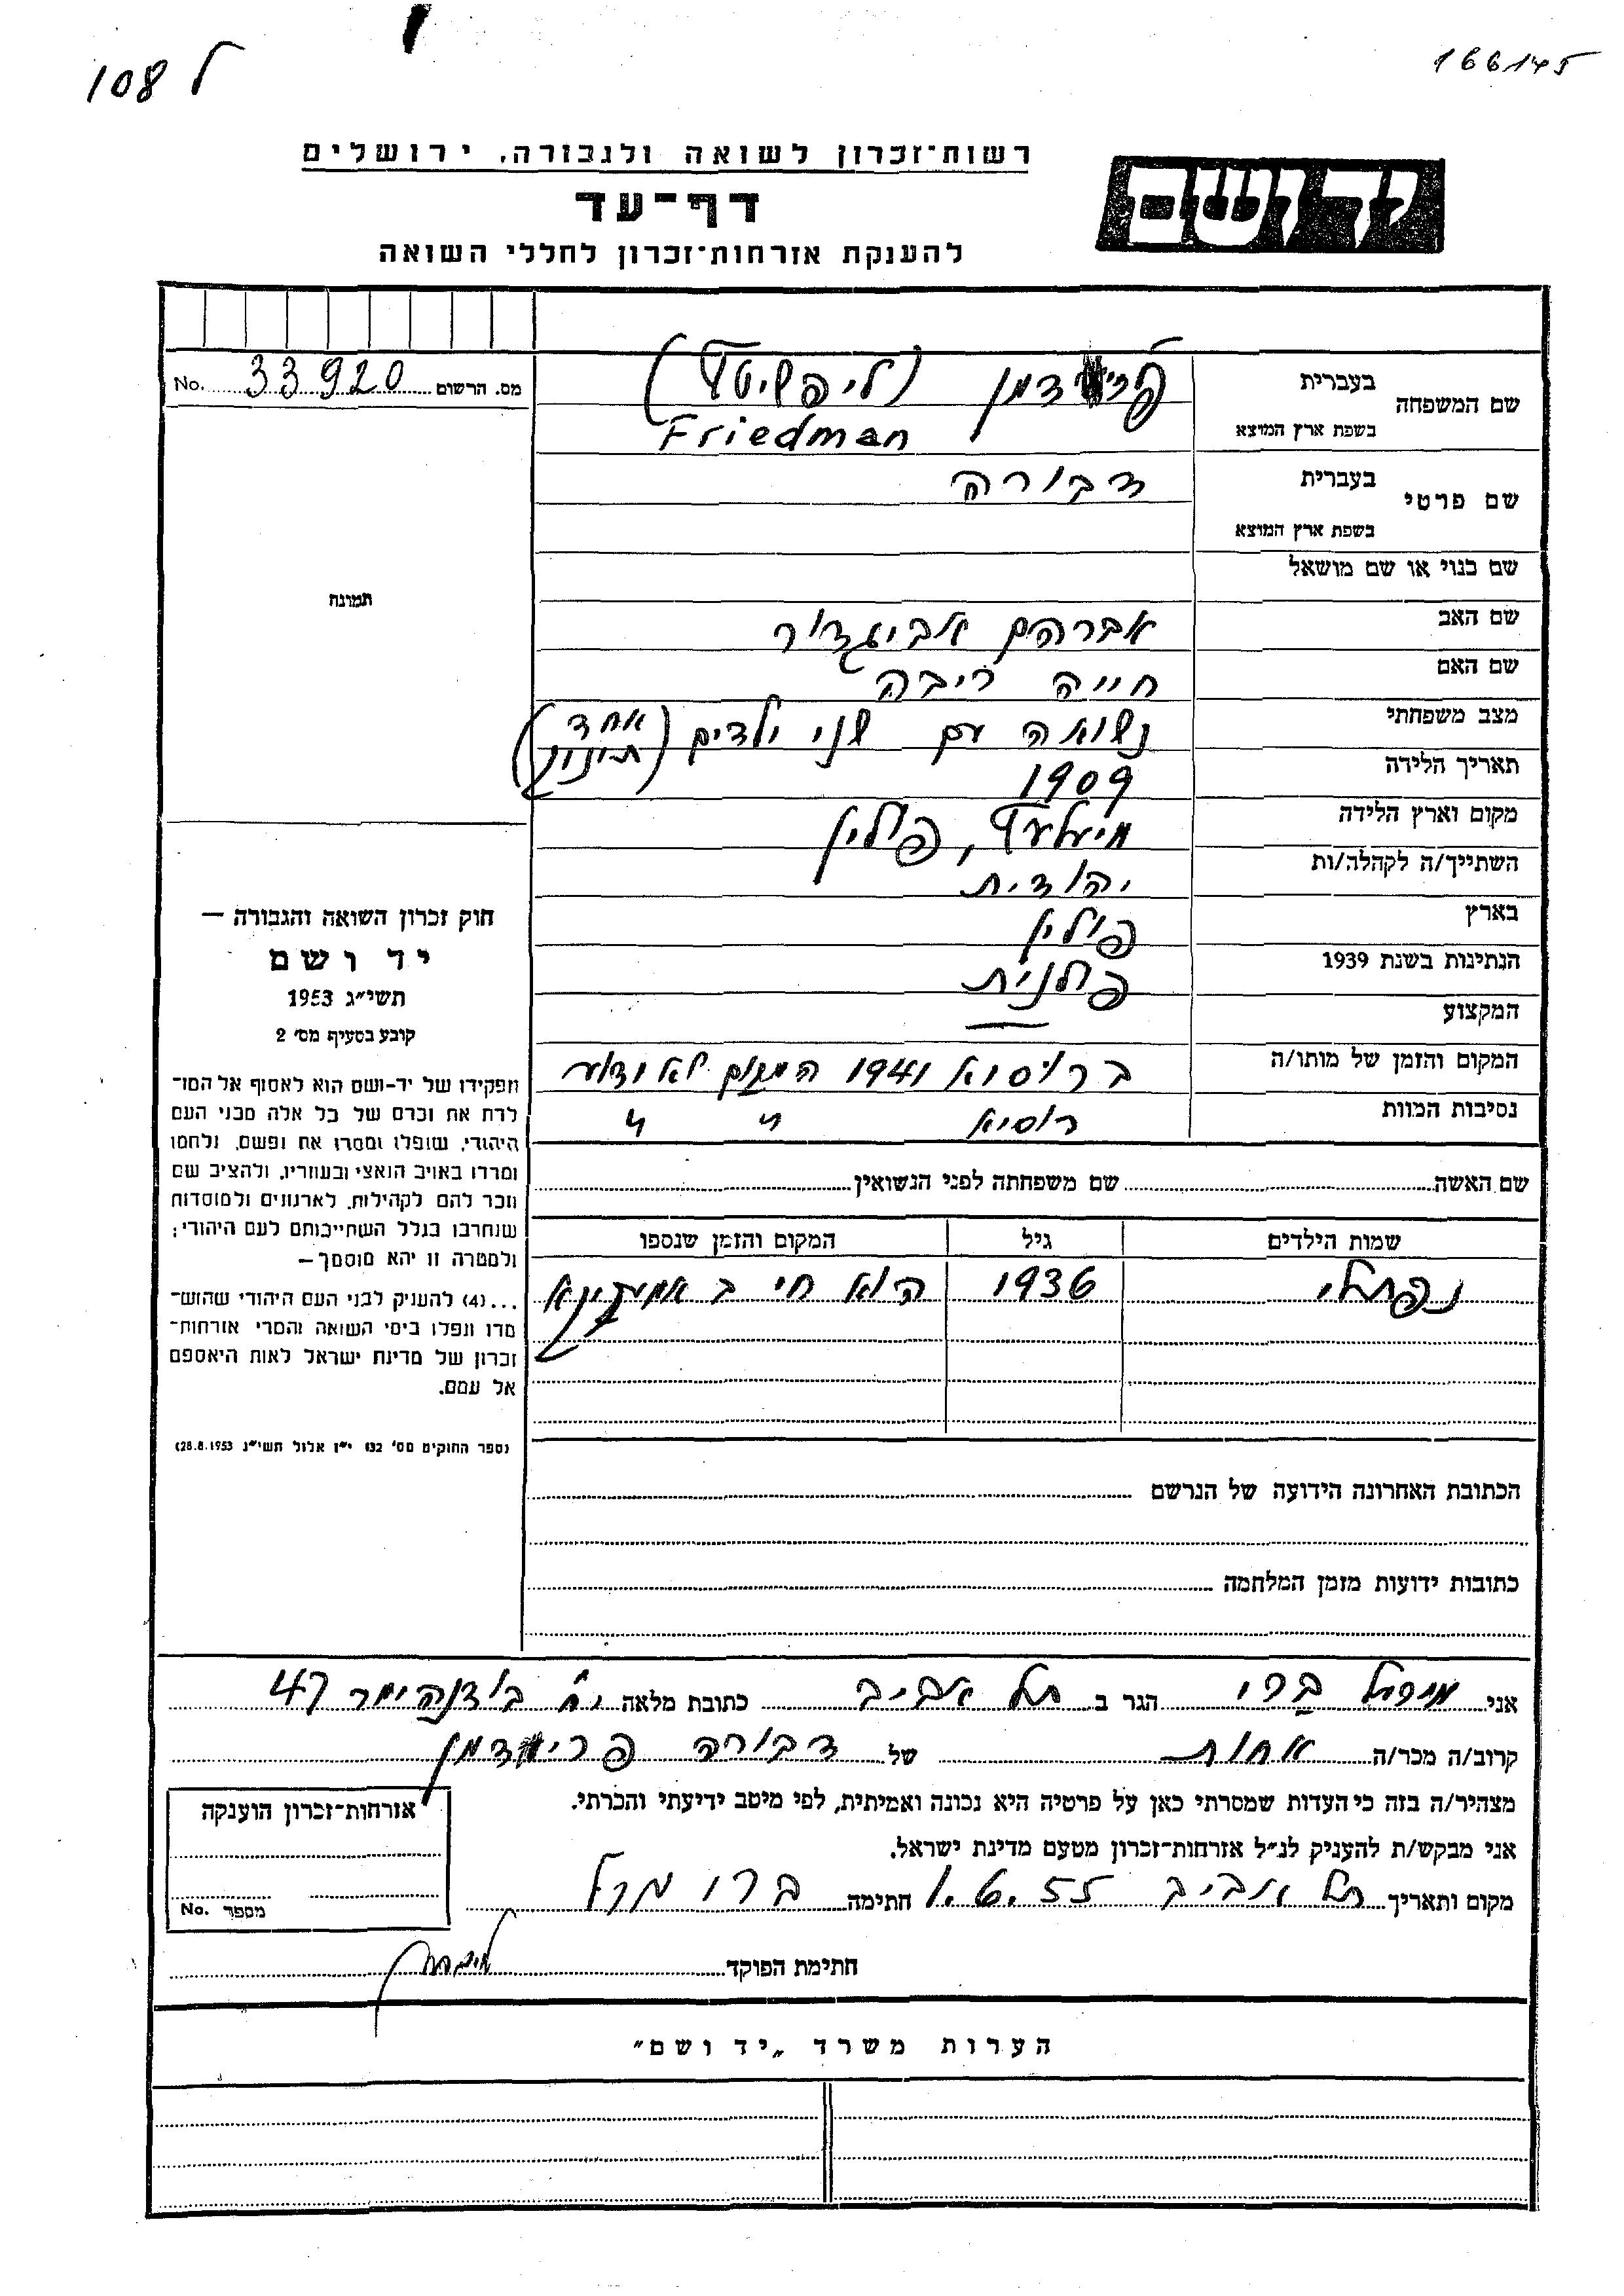 108 ל
166145
רשות־זכרון לשואה ולגבורה, ירושלים
יד ושם
דף־עד
להענקת אזרחות־זכרון לחללי השואה
מס. הרשום No. 33920
שם המשפחה
בעברית פרידמן (ליפשיטץ)
בשפת ארץ המוצא Friedman
שם פרטי
בעברית דבורה
בשפת ארץ המוצא
שם כנוי או שם מושאל
שם האב אברהם אביגדור
שם האם חייה ריבה
מצב משפחתי נשואה עם שני ילדים (אחד תינוק)
תאריך הלידה 1909
מקום וארץ הלידה פולין
השתייך/ה לקהלה/ות יהודית
בארץ פולין
הנתינות בשנת 1939 פולנית
המקצוע —
המקום והזמן של מותו/ה ברוסיא 1941 המקום לא ידוע
נסיבות המוות רוסיא " "
תמונה
חוק זכרון השואה והגבורה —
יד ושם
תשי״ג 1953
קובע בסעיף מס׳ 2
תפקידו של יד-ושם הוא לאסוף אל המו־
לדת את זכרם של כל אלה מבני העם
היהודי, שנפלו ומסרו את נפשם, נלחמו
ומרדו באויב הנאצי ובעוזריו, ולהציב שם
וזכר להם לקהילות, לארגונים ולמוסדות
שנחרבו בגלל השתייכותם לעם היהודי;
ולמטרה זו יהא מוסמך —
...(4) להעניק לבני העם היהודי שהוש־
מדו ונפלו בימי השואה והמרי אזרחות־
זכרון של מדינת ישראל לאות היאספם
אל עמם.
(ספר החוקים מס׳ 132 י״ז אלול תשי״ג 28.8.1953)
שם האשה שם משפחתה לפני הנשואין
שמות הילדים גיל המקום והזמן שנספו
נפתלי 1936 הוא חי ב אמריקא
הכתובת האחרונה הידועה של הנרשם
כתובות ידועות מזמן המלחמה
אני ברו הגר ב תל אביב כתובת מלאה בודנהימר 47
קרוב/ה מכר/ה אחות של דבורה פרידמן
מצהיר/ה בזה כי העדות שמסרתי כאן על פרטיה היא נכונה ואמיתית, לפי מיטב ידיעתי והכרתי.
אני מבקש/ת להעניק לנ״ל אזרחות־זכרון מטעם מדינת ישראל.
מקום ותאריך תל אביב 1.6.55 חתימה ברו
אזרחות־זכרון הוענקה
מספר No.
חתימת הפוקד
הערות משרד „יד ושם״